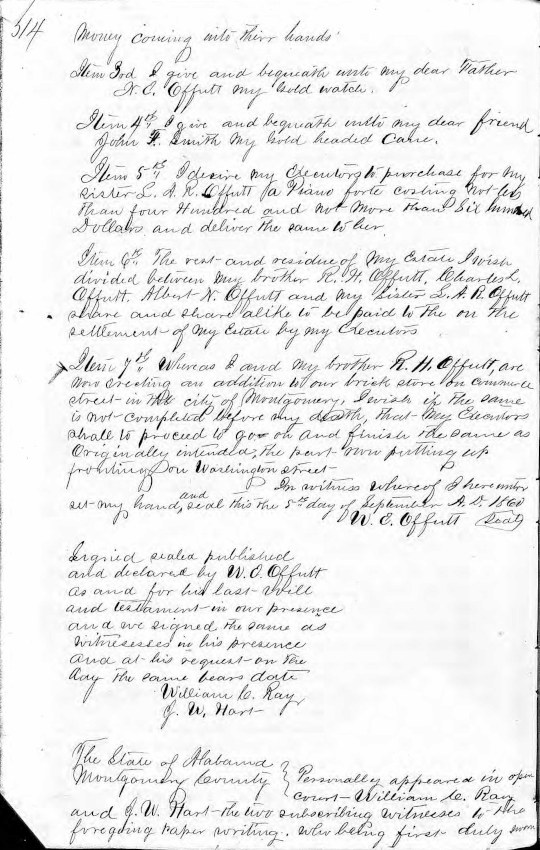 514
Money coming into their hands
Item 3rd I give and bequeath unto my dear Father
N. C. Offutt my Gold watch.
Item 4th I give and bequeath unto my dear friend
John F. Smith My Gold headed Cane.
Item 5th I desire my Executors to purchase for my
sister L. A. R. Offutt a Piano forte costing Not less
than four Hundred and not More than Six hundred
Dollars and deliver the same to her
Item 6th The rest and residue of My Estate I wish
divided between my brother R. H. Offutt, Charles L.
Offutt. Albert N. Offutt and my Sister L. A. R. Offutt
share and share alike to be paid to the on the
settlement of My Estate by my Executors
Item 7th Whereas I and my brother R. H. Offutt, are
now erecting an addition to our brick store on commerce
street in the city of Montgomery, I wish if the same
is not completed before my death, that My Executors
shall to proceed to go on and finish the same as
Originally intended, the part now putting up
fronting on Washington street
In witness whereof I hereunto
set my hand and seal this the 5th day of September A.D. 1860
W. E. Offutt Seal
Signed sealed published
and declared by W. E. Offutt
as and for his last will
and testament in our presence
and we signed the same as
witnesesses in his presence
and at his request on the
day the same bears date
William C. Ray
J. W. Hart
The State of Alabama
Montgomery County } Personally appeared in open
court William C. Ray
and J. W. Hart the two subscribing witnesses to the
foregoing paper writing. who being first duly sworn